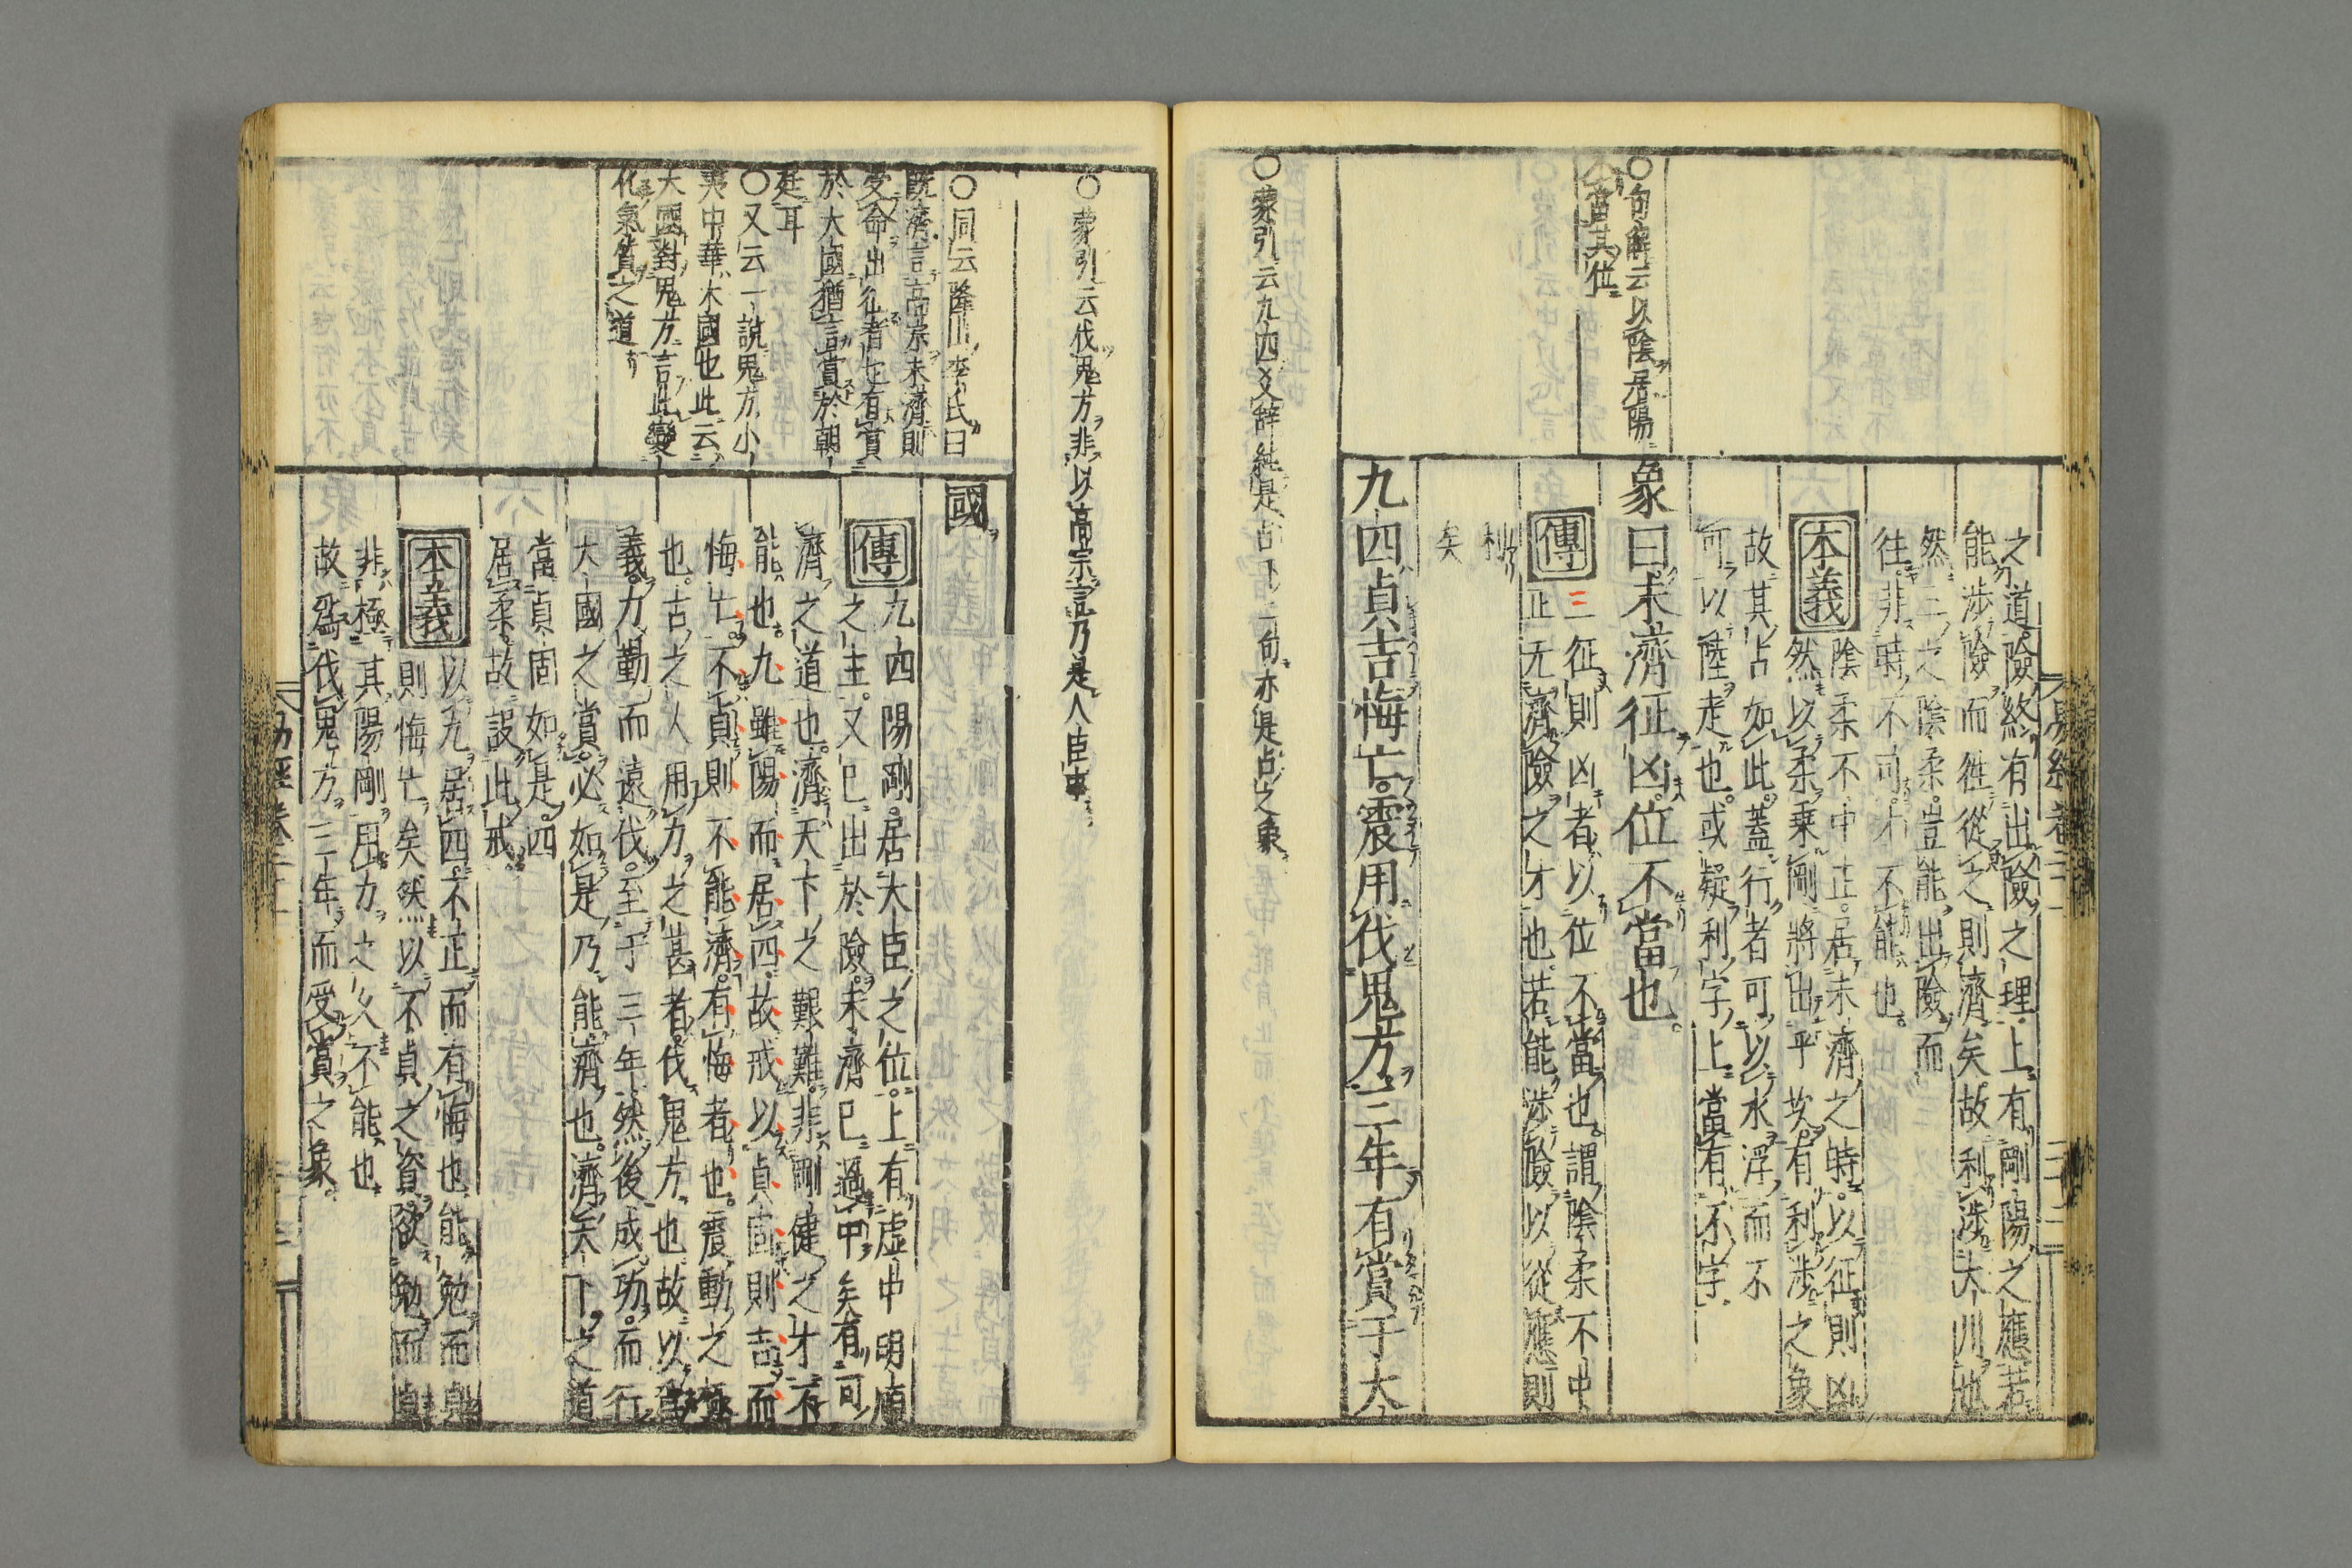 之道險終有出險之理上有剛陽之應若
能涉險而徃從之則濟矣故利涉大川也
然三之陰柔豈能出險而
往非時不可才不能也
本義
陰柔不中正居未濟之時以征則凶
然以柔乘剛將出乎坎有利涉之象
故其占如此蓋行者可以水浮而不
可以陸走也或疑利字上當有不字
○句解云以陰居陽
不當其位
象曰未濟征凶位不當也
傳
三征則凶者以位不當也謂陰柔不中
正无濟險之才也若能涉險以從應則
利
矣
九四貞吉悔亡震用伐鬼方三年有賞于大
○蒙引云九四爻辭純是占下二句亦是占之象
○蒙引云伐鬼方非以高宗言乃是人臣事
○同云隆山李氏曰
既濟言高宗未濟則
受命出征者也有賞
於大國猶言賞於朝
廷耳
○又云一說鬼方小
夷中華大國也此云
大國對鬼方言此變
化氣質之道
國
傳
九四陽剛居大臣之位上有虛中明順
之主又已出於險未濟已過中矣有可
濟之道也濟天下之艱難非剛健之才不
能也九雖陽而居四故戒以貞固則吉而
悔亡不貞則不能濟有悔者也震動之極
也古之人用力之甚者伐鬼方也故以爲
義力勤而遠伐至于三年然後成功而行
大國之賞必如是乃能濟也濟天下之道
當貞固如是四
居柔故設此戒
本義
以九居四不正而有悔也能勉而貞
則悔亡矣然以不貞之資欲勉而貞
非極其陽剛用力之久不能也
故爲伐鬼方三年而受賞之象